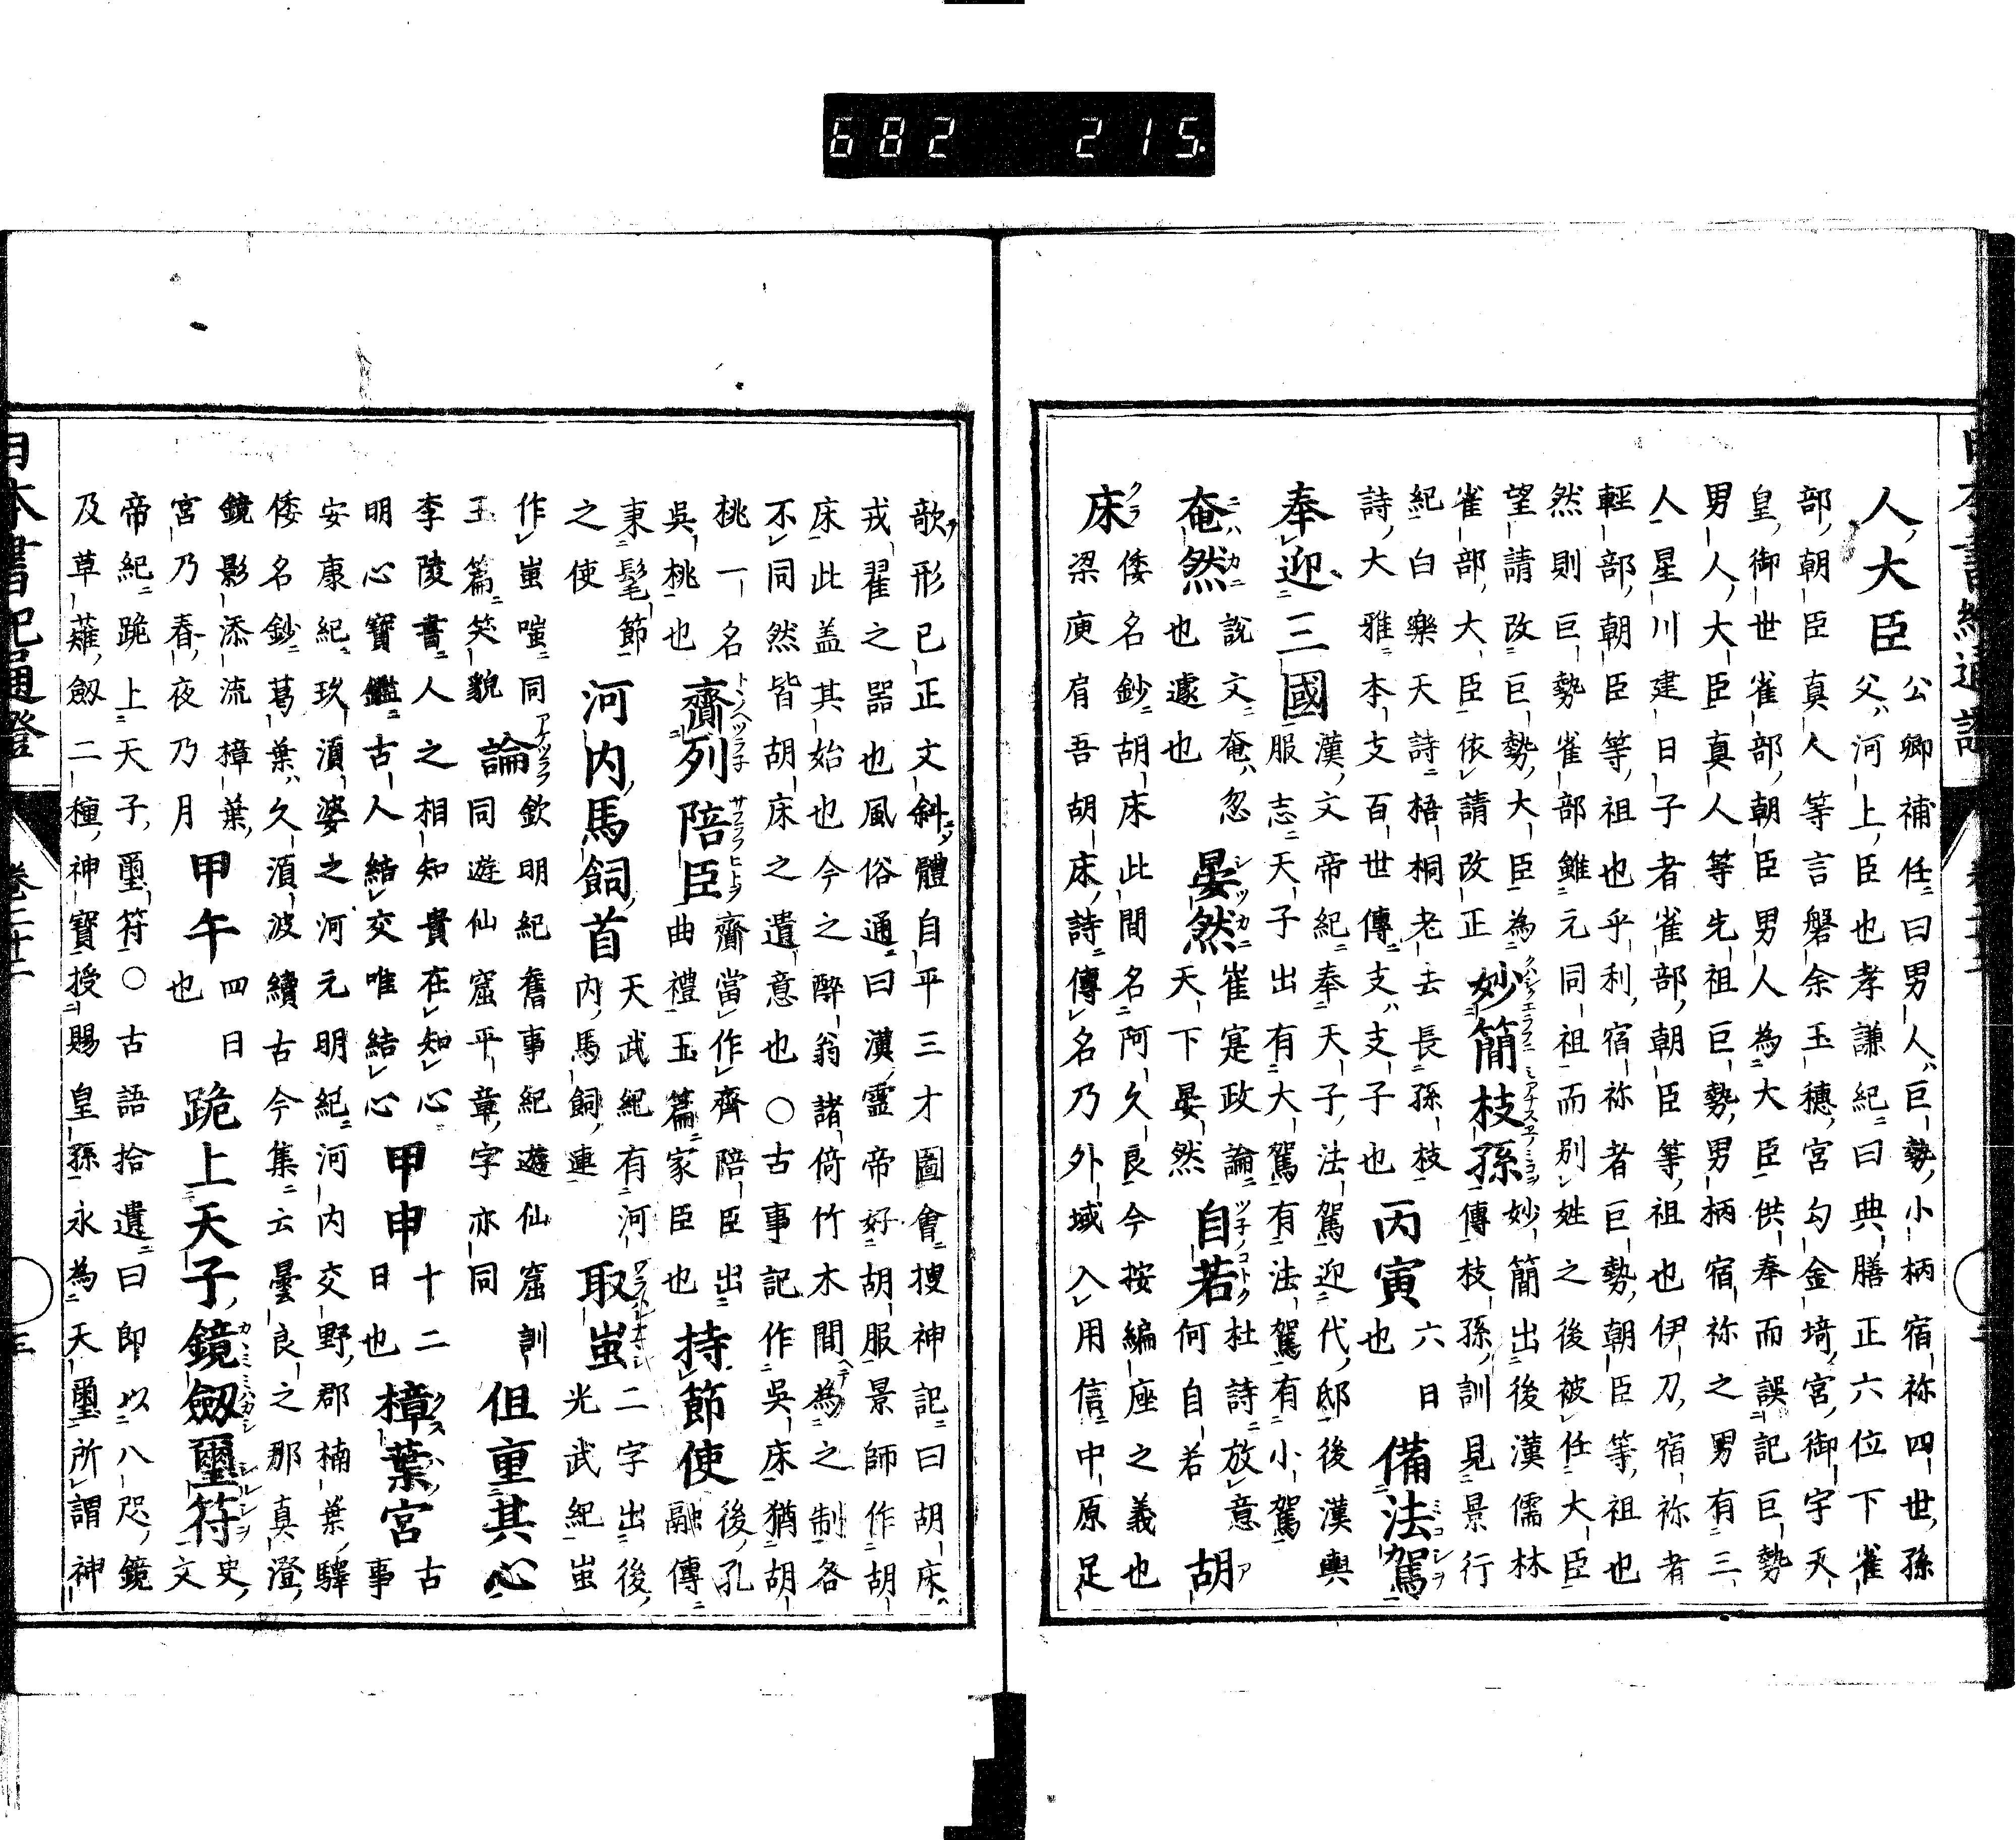 682 215.
人大臣 公卿補任曰男人巨勢小柄宿祢四世孫
父河上臣也孝謙紀曰典膳正六位下雀
部朝臣真人等言磐余玉穗宮勾金埼宮御宇天
皇御世雀部朝臣男人為大臣供奉而誤記巨勢
男人大臣真人等先祖巨勢男柄宿祢之男有三
人星川建日子者雀部朝臣等祖也伊刀宿祢者
輕部朝臣等祖也乎利宿祢者巨勢朝臣等祖也
然則巨勢雀部雖元同祖而別姓之後被任大臣
望請改巨勢大臣為
雀部大臣依請改正 妙簡枝孫 妙簡出後漢儒林
傳枝孫訓見景行
紀白樂天詩梧桐老去長孫枝
詩大雅本支百世傳支支子也 丙寅 六日
也 備法駕
奉迎三國 漢文帝紀奉天子法駕迎代邸後漢輿
服志天子出有大駕有法駕有小駕
奄然 說文奄忽
也遽也 晏然 崔寔政論
天下晏然 自若 杜詩放意
何自若 胡
床 倭名鈔胡床此間名阿久良今按編座之義也
梁庾肩吾胡床詩傳名乃外域入用信中原足
欹形已正文斜體自平三才圖會搜神記曰胡床
戎翟之器也風俗通曰漢靈帝好胡服景師作胡
床此盖其始也今之醉翁諸倚竹木間為之制各
不同然皆胡床之遺意也○古事記作吳床猶胡
桃一名
吳桃也 齊列陪臣 齊當作齊陪臣出
曲禮玉篇家臣也 持節使 後孔
融傳
秉髦節
之使 河内馬飼首 天武紀有河
内馬飼連 取蚩 二字出後
光武紀蚩
作蚩嗤同
玉篇笑貌 論 欽明紀舊事紀遊仙窟訓
同遊仙窟平章字亦同 但重其心
李陵書人之相知貴在知心
明心寶鑑古人結交唯結心 甲申 十二
日也 樟葉宮 古
事
安康紀玖湏婆之河元明紀河内交野郡楠葉驛
倭名鈔葛葉久湏波續古今集云曇良之那真澄
鏡影添流樟葉
宮乃春夜乃月 甲午 四日
也 跪上天子鏡劔璽符 史
文
帝紀跪上天子璽符○古語拾遺曰即以八咫鏡
及草薙劔二種神寶授賜皇孫永為天璽所謂神
日本書紀通證
卷二十二
三